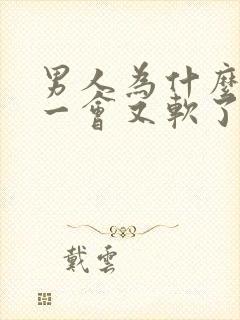 男人為什麼
一會又軟了
戴雲